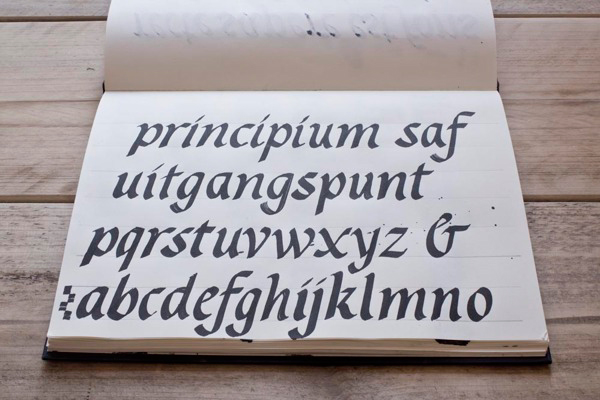 principium saf
uitgangspunt
pqrstuvwxyz &
abcdefghijklmno